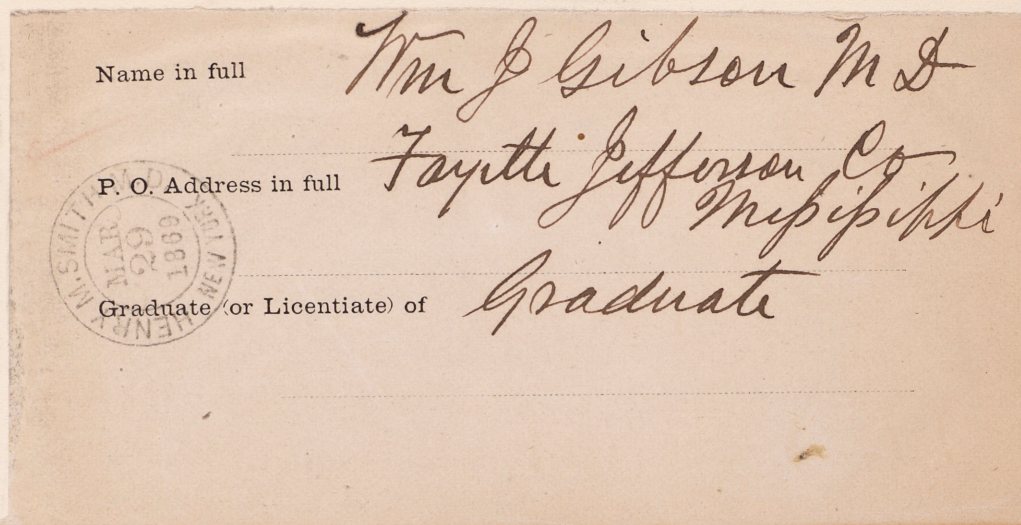 Name in full Wm J Gibson M D
P. O. Address in full Fayette Jefferson Co
Missisippi
Graduate (or Licentiate) of Graduate
HENRY M. SMITH M.D. NEW YORK
MAR
29